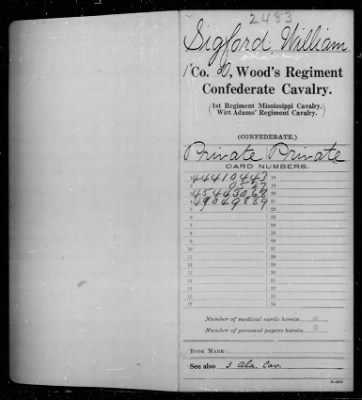 2483
Sigford, William
Co. D, Wood's Regiment
Confederate Cavalry.
(1st Regiment Mississippi Cavalry.
Wirt Adams' Regiment Cavalry.)
(CONFEDERATE.)
Private Private
CARD NUMBERS.
1 44410443 18
2 19
3 45443062 20
4 49049829 21
5 22
6 23
7 24
8 25
9 26
10 27
11 28
12 29
13 30
14 31
15 32
16 33
17 34
Number of medical cards herein 0
Number of personal papers herein 0
BOOK MARK:
See also 3 Ala. Cav.